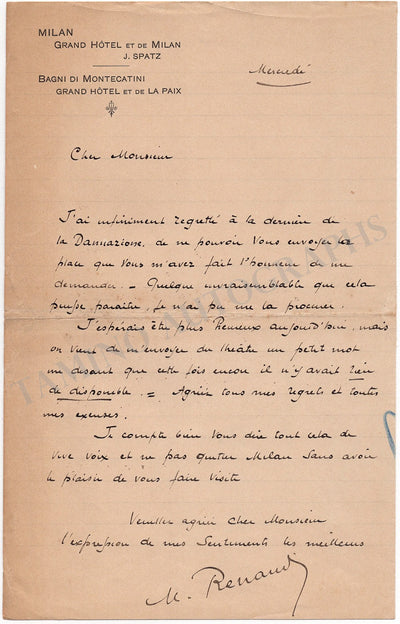 MILAN
GRAND HÔTEL ET DE MILAN
J. SPATZ
BAGNI DI MONTECATINI
GRAND HÔTEL ET DE LA PAIX
Mercredi
Cher Monsieur
J'ai infiniment regretté à la dernière de
la Dannazione, de ne pouvoir vous envoyer la
place que vous m'avez fait l'honneur de me
demander. – Quelque invraisemblable que cela
puisse paraître, je n'ai pu me la procurer.
J'espérais être plus heureux aujourd'hui, mais
on vient de m'envoyer du théâtre un petit mot
me disant que cette fois encore il n'y avait rien
de disponible. = Agréez tous mes regrets et toutes
mes excuses.
Je compte bien vous dire tout cela de
vive voix et ne pas quitter Milan sans avoir
le plaisir de vous faire visite
Veuillez agréer cher Monsieur
l'expression de mes sentiments les meilleurs
M. Renaud
TAMINO AUTOGRAPHS